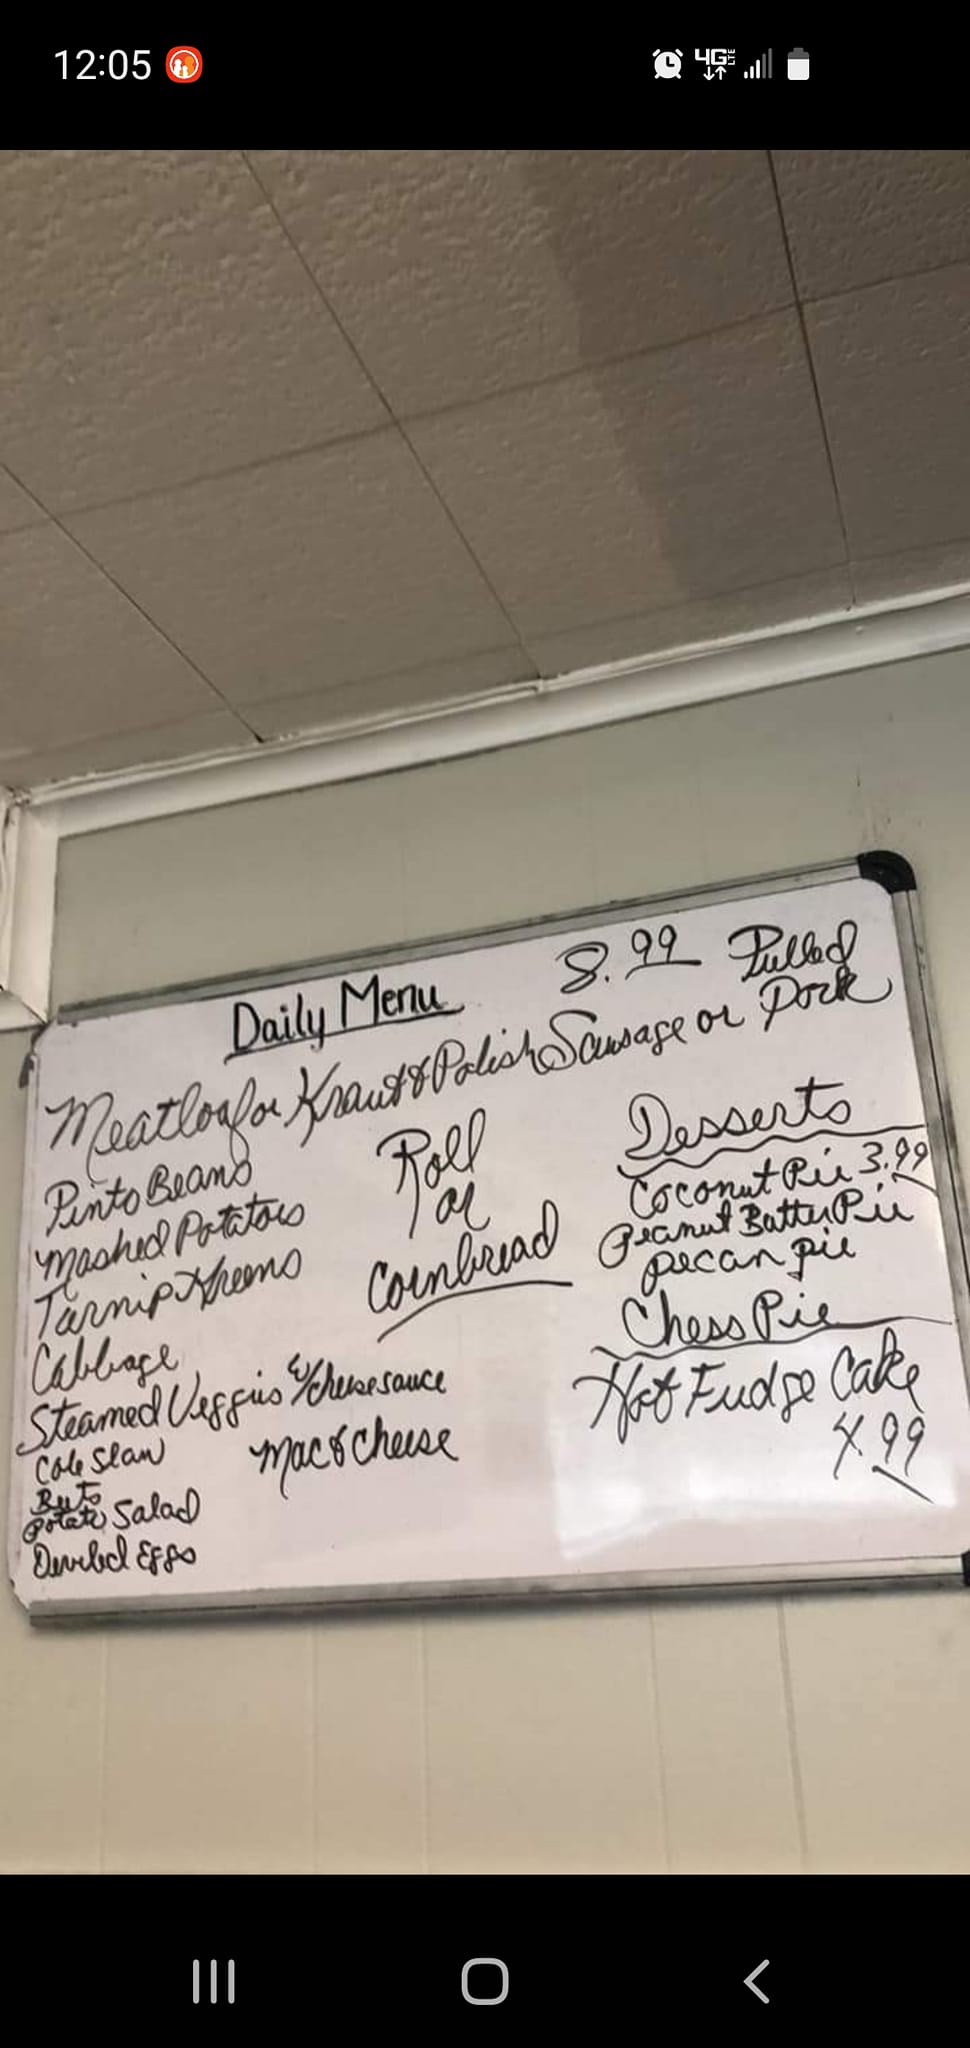 12:05
4G LTE
Daily Menu 8.99 Pulled
Meatloaf or Kraut & Polish Sausage or Pork
Pinto Beans
Mashed Potatoes
Turnip Greens
Cabbage
Steamed Veggies w/cheese sauce
Cole Slaw
Beets
Potato Salad
Deviled Eggs
Roll
or
Cornbread
Mac & Cheese
Desserts
Coconut Pie 3.99
Peanut Butter Pie
pecan pie
Chess Pie
Hot Fudge Cake
4.99